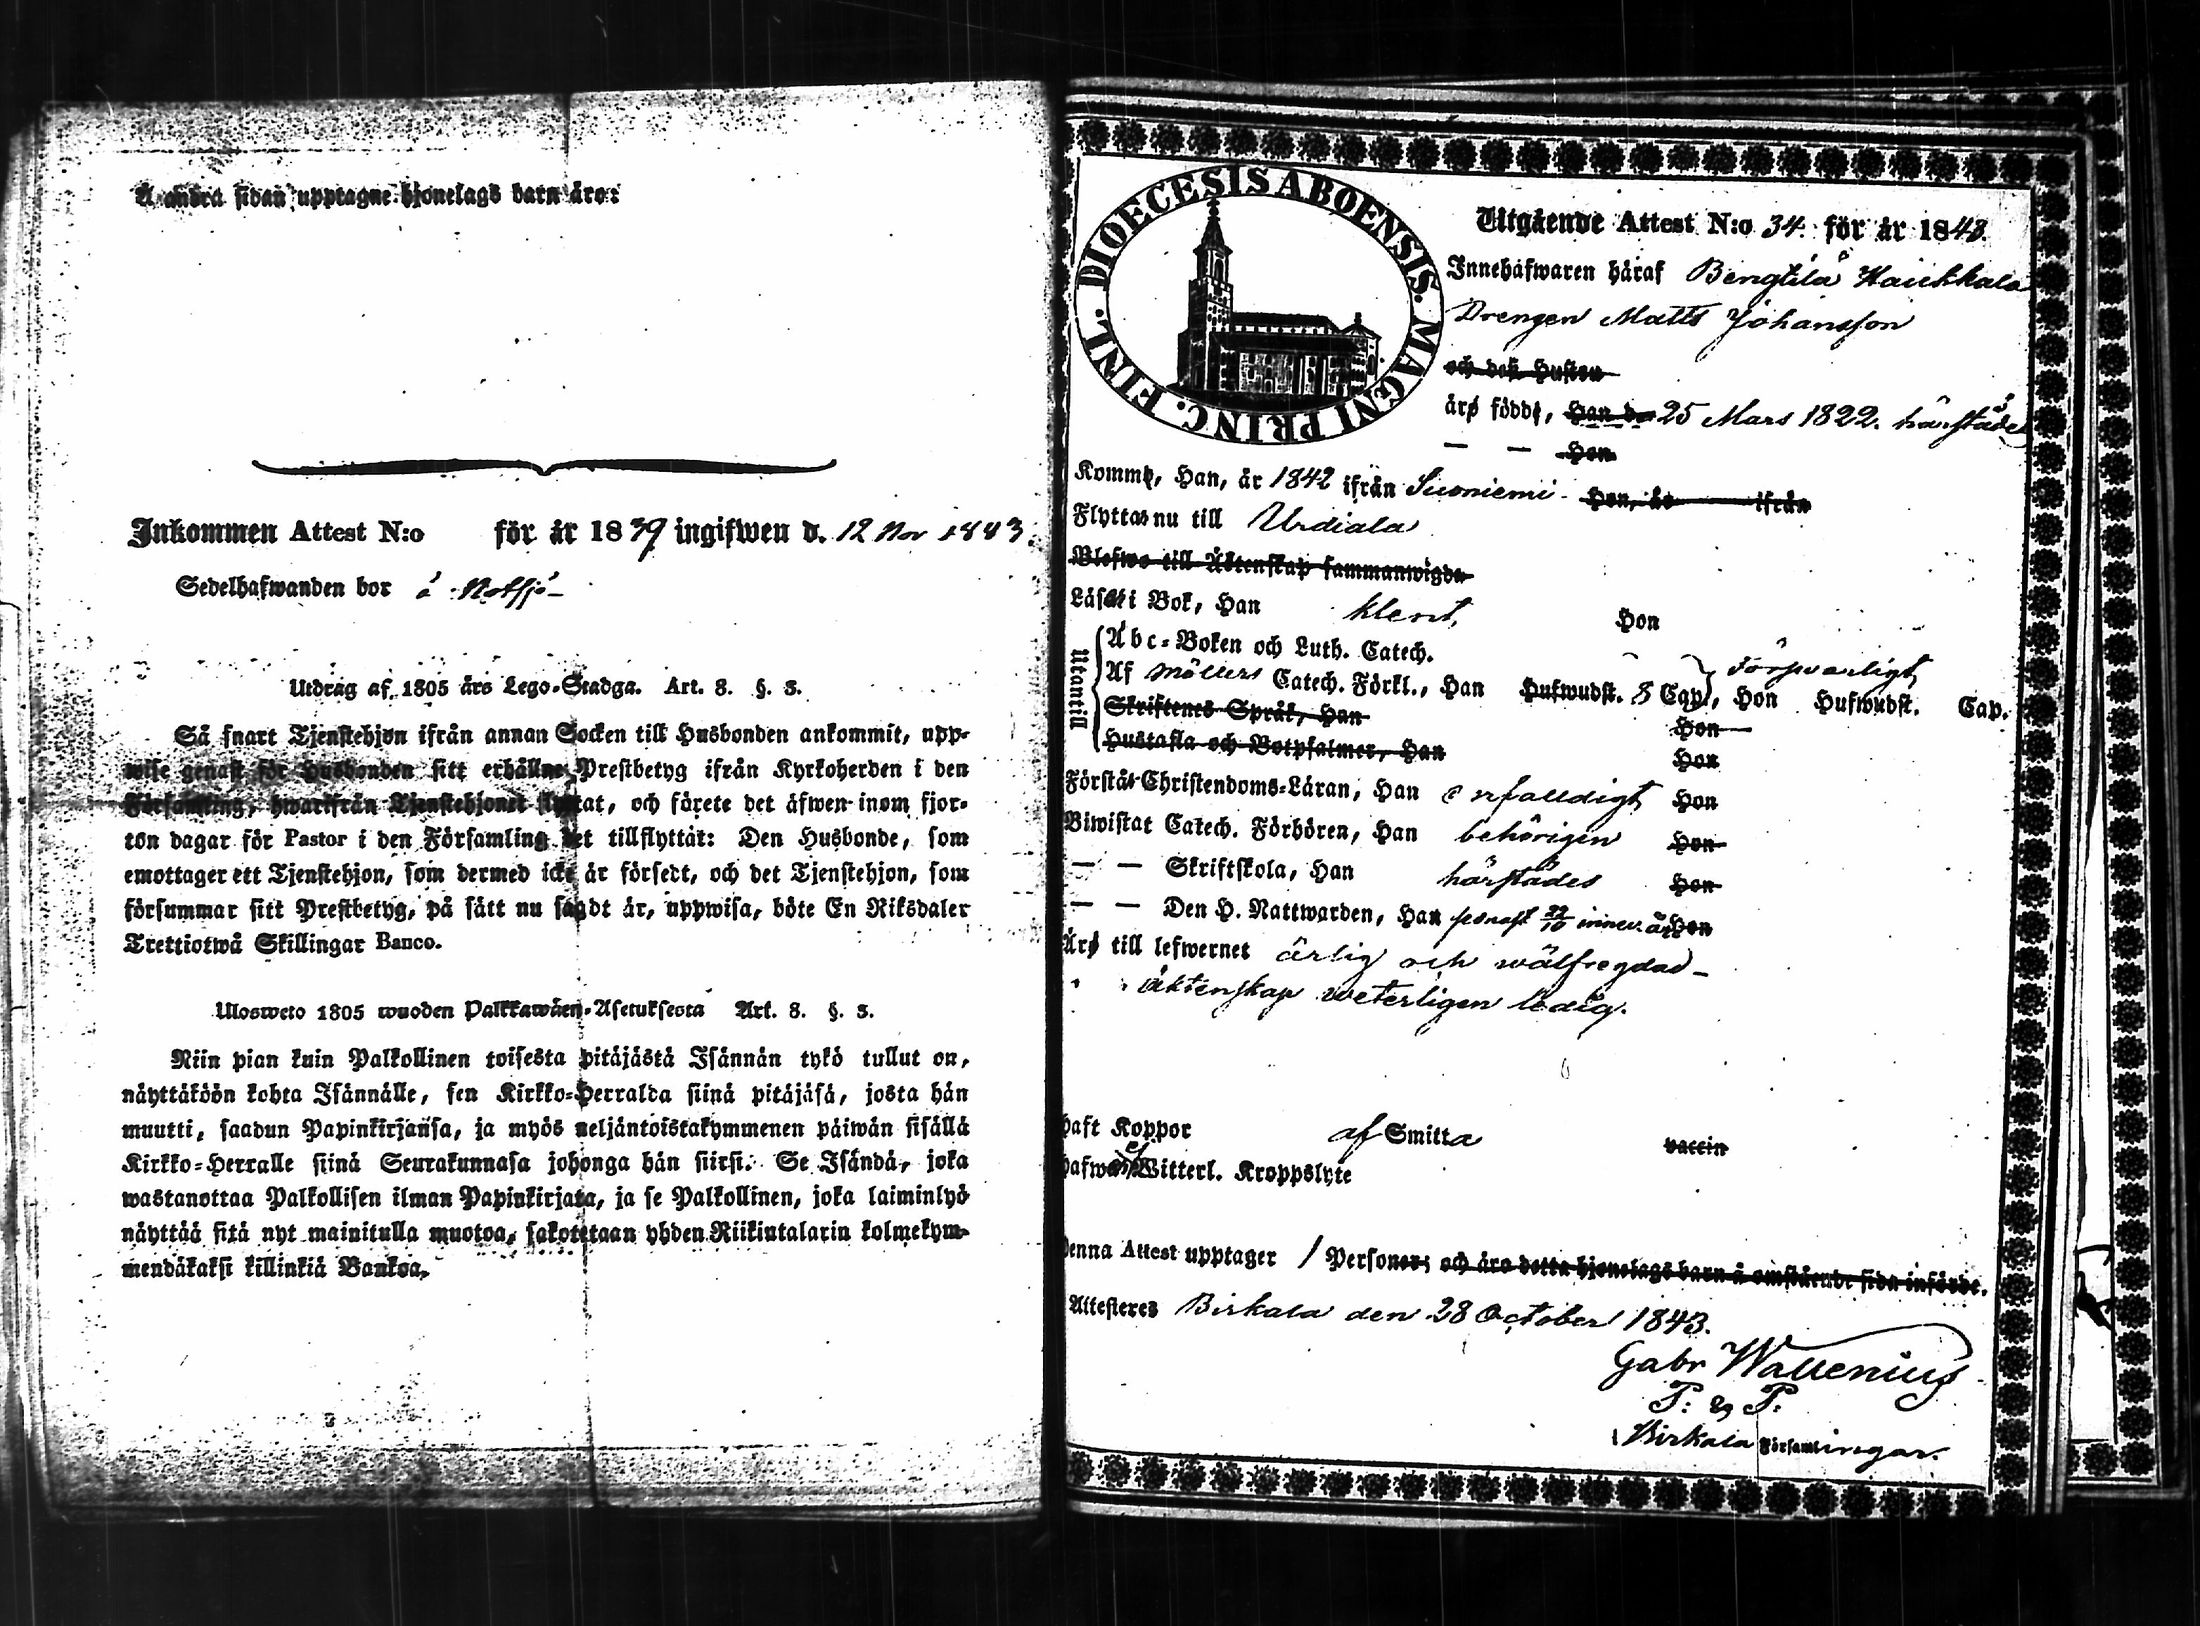 Å andra sidan upptagne hjonelags barn äro:
Inkommen Attest N:o för år 1839 ingifwen d. 12 Nov 1843.
Sedelhafwanden bor å Notsjö
Utdrag af 1805 års Lego-Stadga. Art. 8. §. 3.
Så snart Tjenstehjon ifrån annan Socken till Husbonden ankommit, upp-
wise genast för Husbonden sitt erhållne Prestbetyg ifrån Kyrkoherden i den
Församling, hwarifrån Tjenstehjonet flyttat, och förete det äfwen inom fjor-
ton dagar för Pastor i den Församling det tillflyttat: Den Husbonde, som
emottager ett Tjenstehjon, som dermed icke är försedt, och det Tjenstehjon, som
försummar sitt Prestbetyg, på sätt nu sagdt är, uppwisa, böte En Riksdaler
Trettiotwå Skillingar Banco.
Ulosweto 1805 wuoden Palkkawäen-Asetuksesta Art. 8. §. 3.
Niin pian kuin Palkollinen toisesta pitäjästä Isännän tykö tullut on,
näyttäköön kohta Isännälle, sen Kirkko-Herralda siinä pitäjäsä, josta hän
muutti, saadun Papinkirjansa, ja myös neljäntoistakymmenen päiwän sisällä
Kirkko-Herralle siinä Seurakunnasa johonga hän siirsi. Se Isändä, joka
wastanottaa Palkollisen ilman Papinkirjata, ja se Palkollinen, joka laiminlyö
näyttää sitä nyt mainitulla muotoa, sakotetaan yhden Riikintalarin kolmekym-
mendäkaksi killinkiä Bankoa.
DIOECESIS ABOENSIS. MAGNI PRINC. FINL.
Utgående Attest N:o 34. för år 1843.
Innehafwaren häraf Bengtilä Haukkala
Drengen Matts Johansson
och dess Hustru
äro födde, Han d. 25 Mars 1822. härstädes
— — Hon
Kommo, Han, år 1842 ifrån Suoniemi Hon, år ifrån
Flyttas nu till Urdiala
Blefwo till Äktenskap sammanwigde
Läser i Bok, Han klent, Hon
Utantill
Abc-Boken och Luth. Catech.
försvarligt
Af Möllers Catech. Förkl., Han Hufwudst. 8 Cap., Hon Hufwudst. Cap.
Skriftenes Språk, Han Hon
Hustafla och Botpsalmer, Han Hon
Förstår Christendoms-Läran, Han enfalldigt Hon
Biwistat Catech. Förhören, Han behörigen Hon
— — Skriftskola, Han härstädes Hon
— — Den H. Nattwarden, Han senast 22/10 innev. år Hon
Äro till lefwernet ärlig och wälfregdad
Äktenskap weterligen ledig.
Haft Koppor af Smitta vaccin
Hafwer ej Witterl. Kroppslyte
Denna Attest upptager 1 Personer; och äro detta hjonelags barn å omstående sida införde.
Attesteres Birkala den 28 October 1843.
Gabr Wallenius
P: & P:
i Birkala Församlingar.